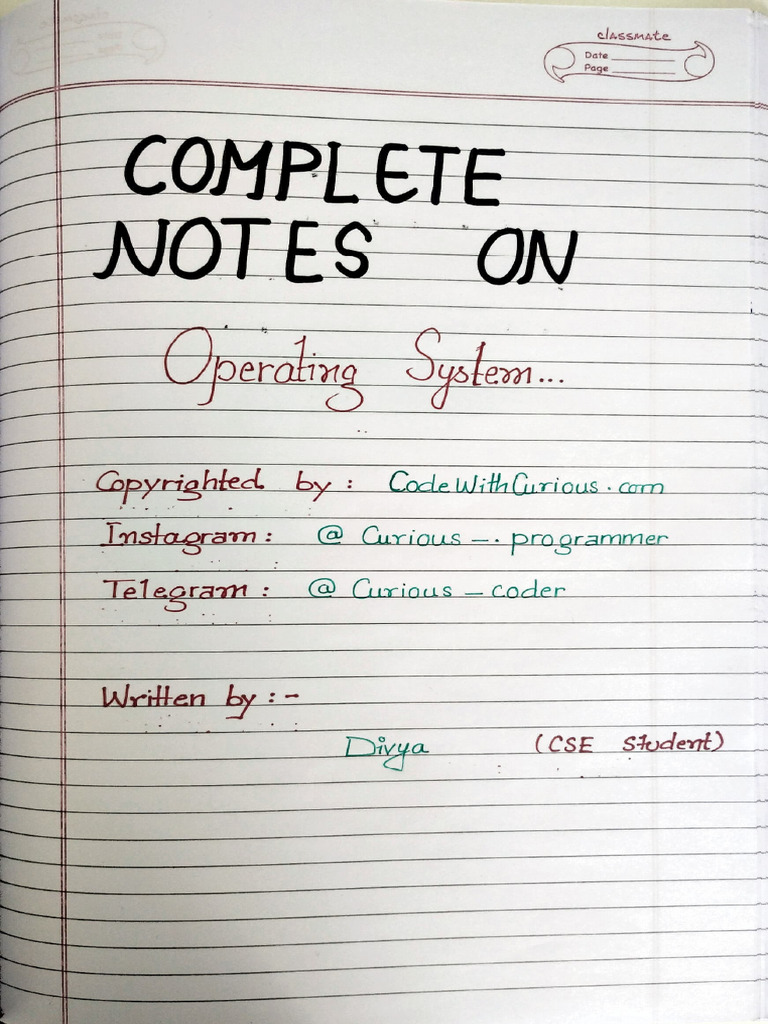 classmate
Date
Page
COMPLETE
NOTES ON
Operating System...
Copyrighted by : CodeWithCurious.com
Instagram : @ Curious _. programmer
Telegram : @ Curious _ coder
Written by :-
Divya (CSE Student)